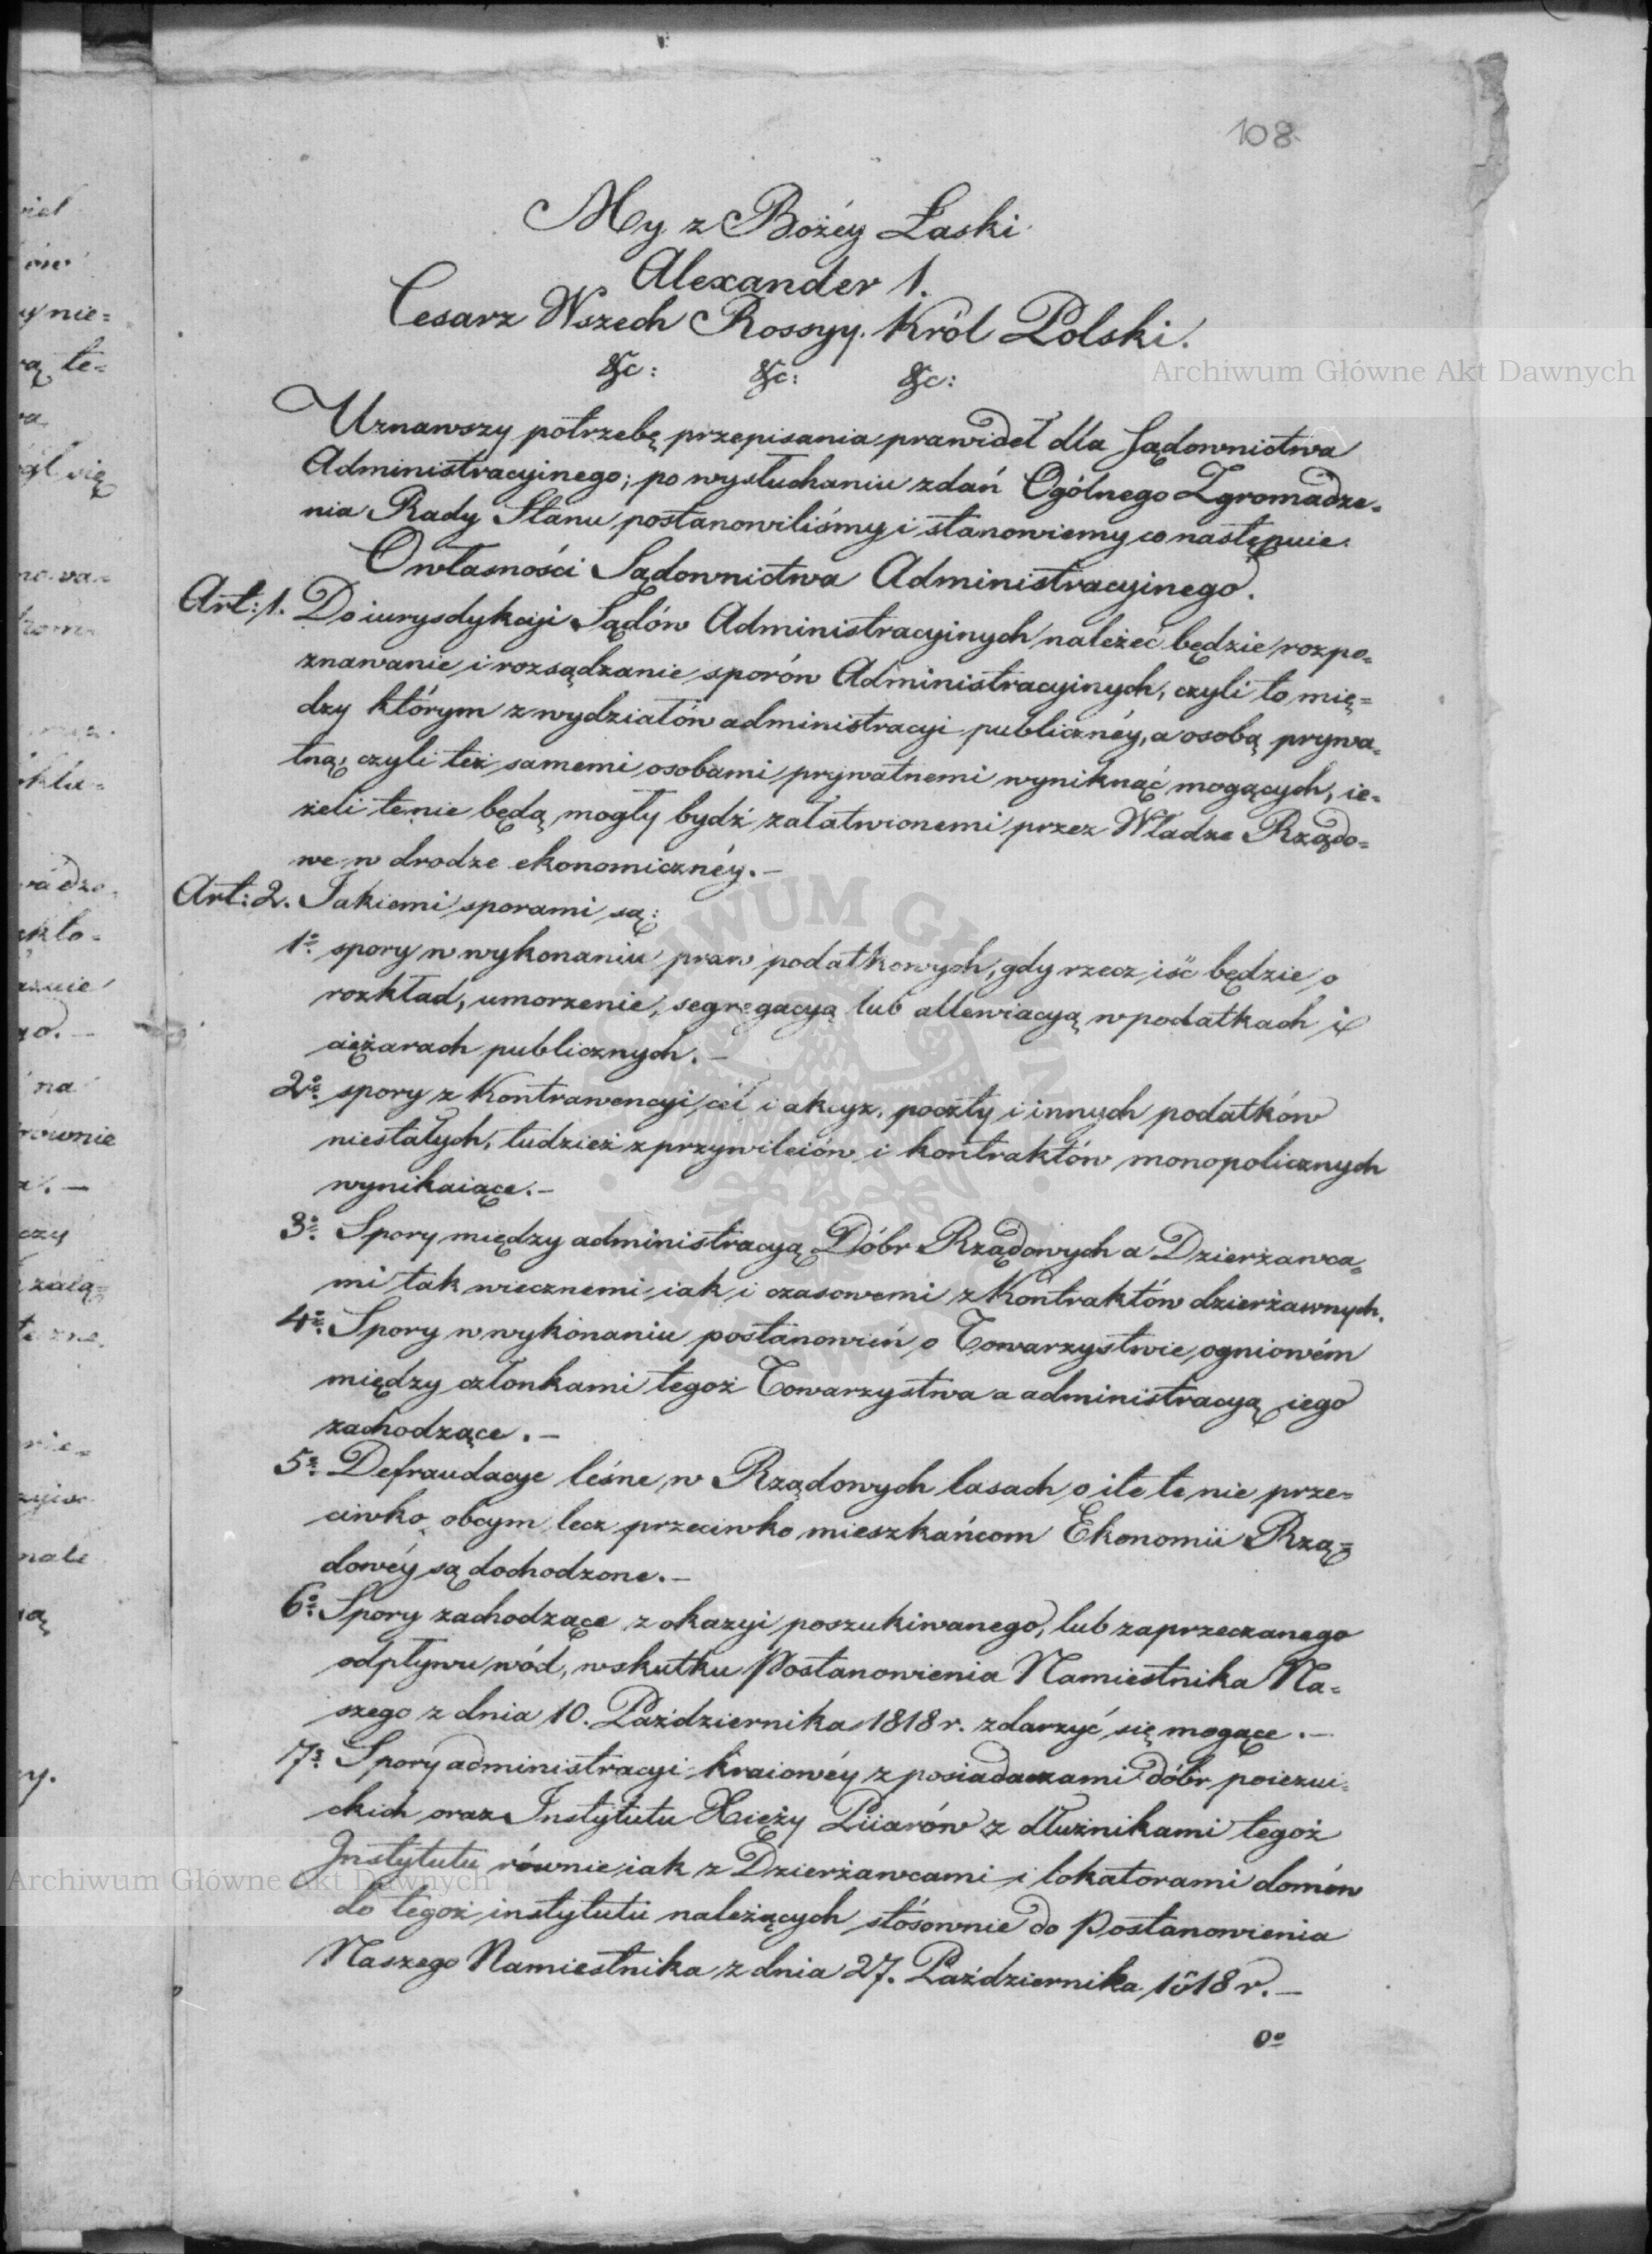 108
My z Bożéy Łaski
Alexander 1.
Cesarz Wszech Rossyy. Król Polski.
&c: &c: &c:
Uznawszy potrzebę przepisania prawideł dla Sądownictwa
Administracyinego; po wysłuchaniu zdań Ogólnego Zgromadze=
nia Rady Stanu postanowiliśmy i stanowiemy co następuie.
O własności Sądownictwa Administracyinego.
Art: 1. Do iurysdykcyi Sądów Administracyinych należeć będzie rozpo=
znawanie i rozsądzanie sporów Administracyinych, czyli to mię=
dzy którym z wydziałów administracyi publicznéy, a osobą prywa=
tną, czyli też samemi osobami prywatnemi wyniknąć mogących, ie=
żeli te nie będą mogły bydź załatwionemi przez Władze Rządo=
we w drodze ekonomicznéy. –
Art: 2. Takiemi sporami są:
1o spory w wykonaniu praw podatkowych, gdy rzecz iść będzie o
rozkład, umorzenie, segregacyą lub allewiacyą w podatkach i
ciężarach publicznych. –
2o spory z Kontrawencyi ceł i akcyz, poczty i innych podatków
niestałych, tudzież z przywileiów i kontraktów monopolicznych
wynikaiące. –
3o Spory między administracyą Dóbr Rządowych a Dzierżawca=
mi tak wiecznemi iak i czasowemi z Kontraktów dzierżawnych.
4o Spory w wykonaniu postanowień o Towarzystwie ogniowém
między członkami tegoż Towarzystwa a administracyą iego
zachodzące. –
5o Defraudacye leśne w Rządowych lasach o ile te nie prze=
ciwko obcym lecz przeciwko mieszkańcom Ekonomii Rzą=
dowéy są dochodzone. –
6o Spory zachodzące z okazyi poszukiwanego, lub zaprzeczanego
odpływu wód, w skutku Postanowienia Namiestnika Na=
szego z dnia 10. Października 1818 r. zdarzyć się mogące. –
7o Spory administracyi kraiowéy z posiadaczami dóbr poiezui=
ckich oraz Instytutu Xięży Piiarów z dłużnikami tegoż
Instytutu równie iak z Dzierżawcami i lokatorami domów
do tegoż instytutu należących stósownie do Postanowienia
Naszego Namiestnika z dnia 27. Października 1818 r. –
Archiwum Główne Akt Dawnych
Archiwum Główne Akt Dawnych